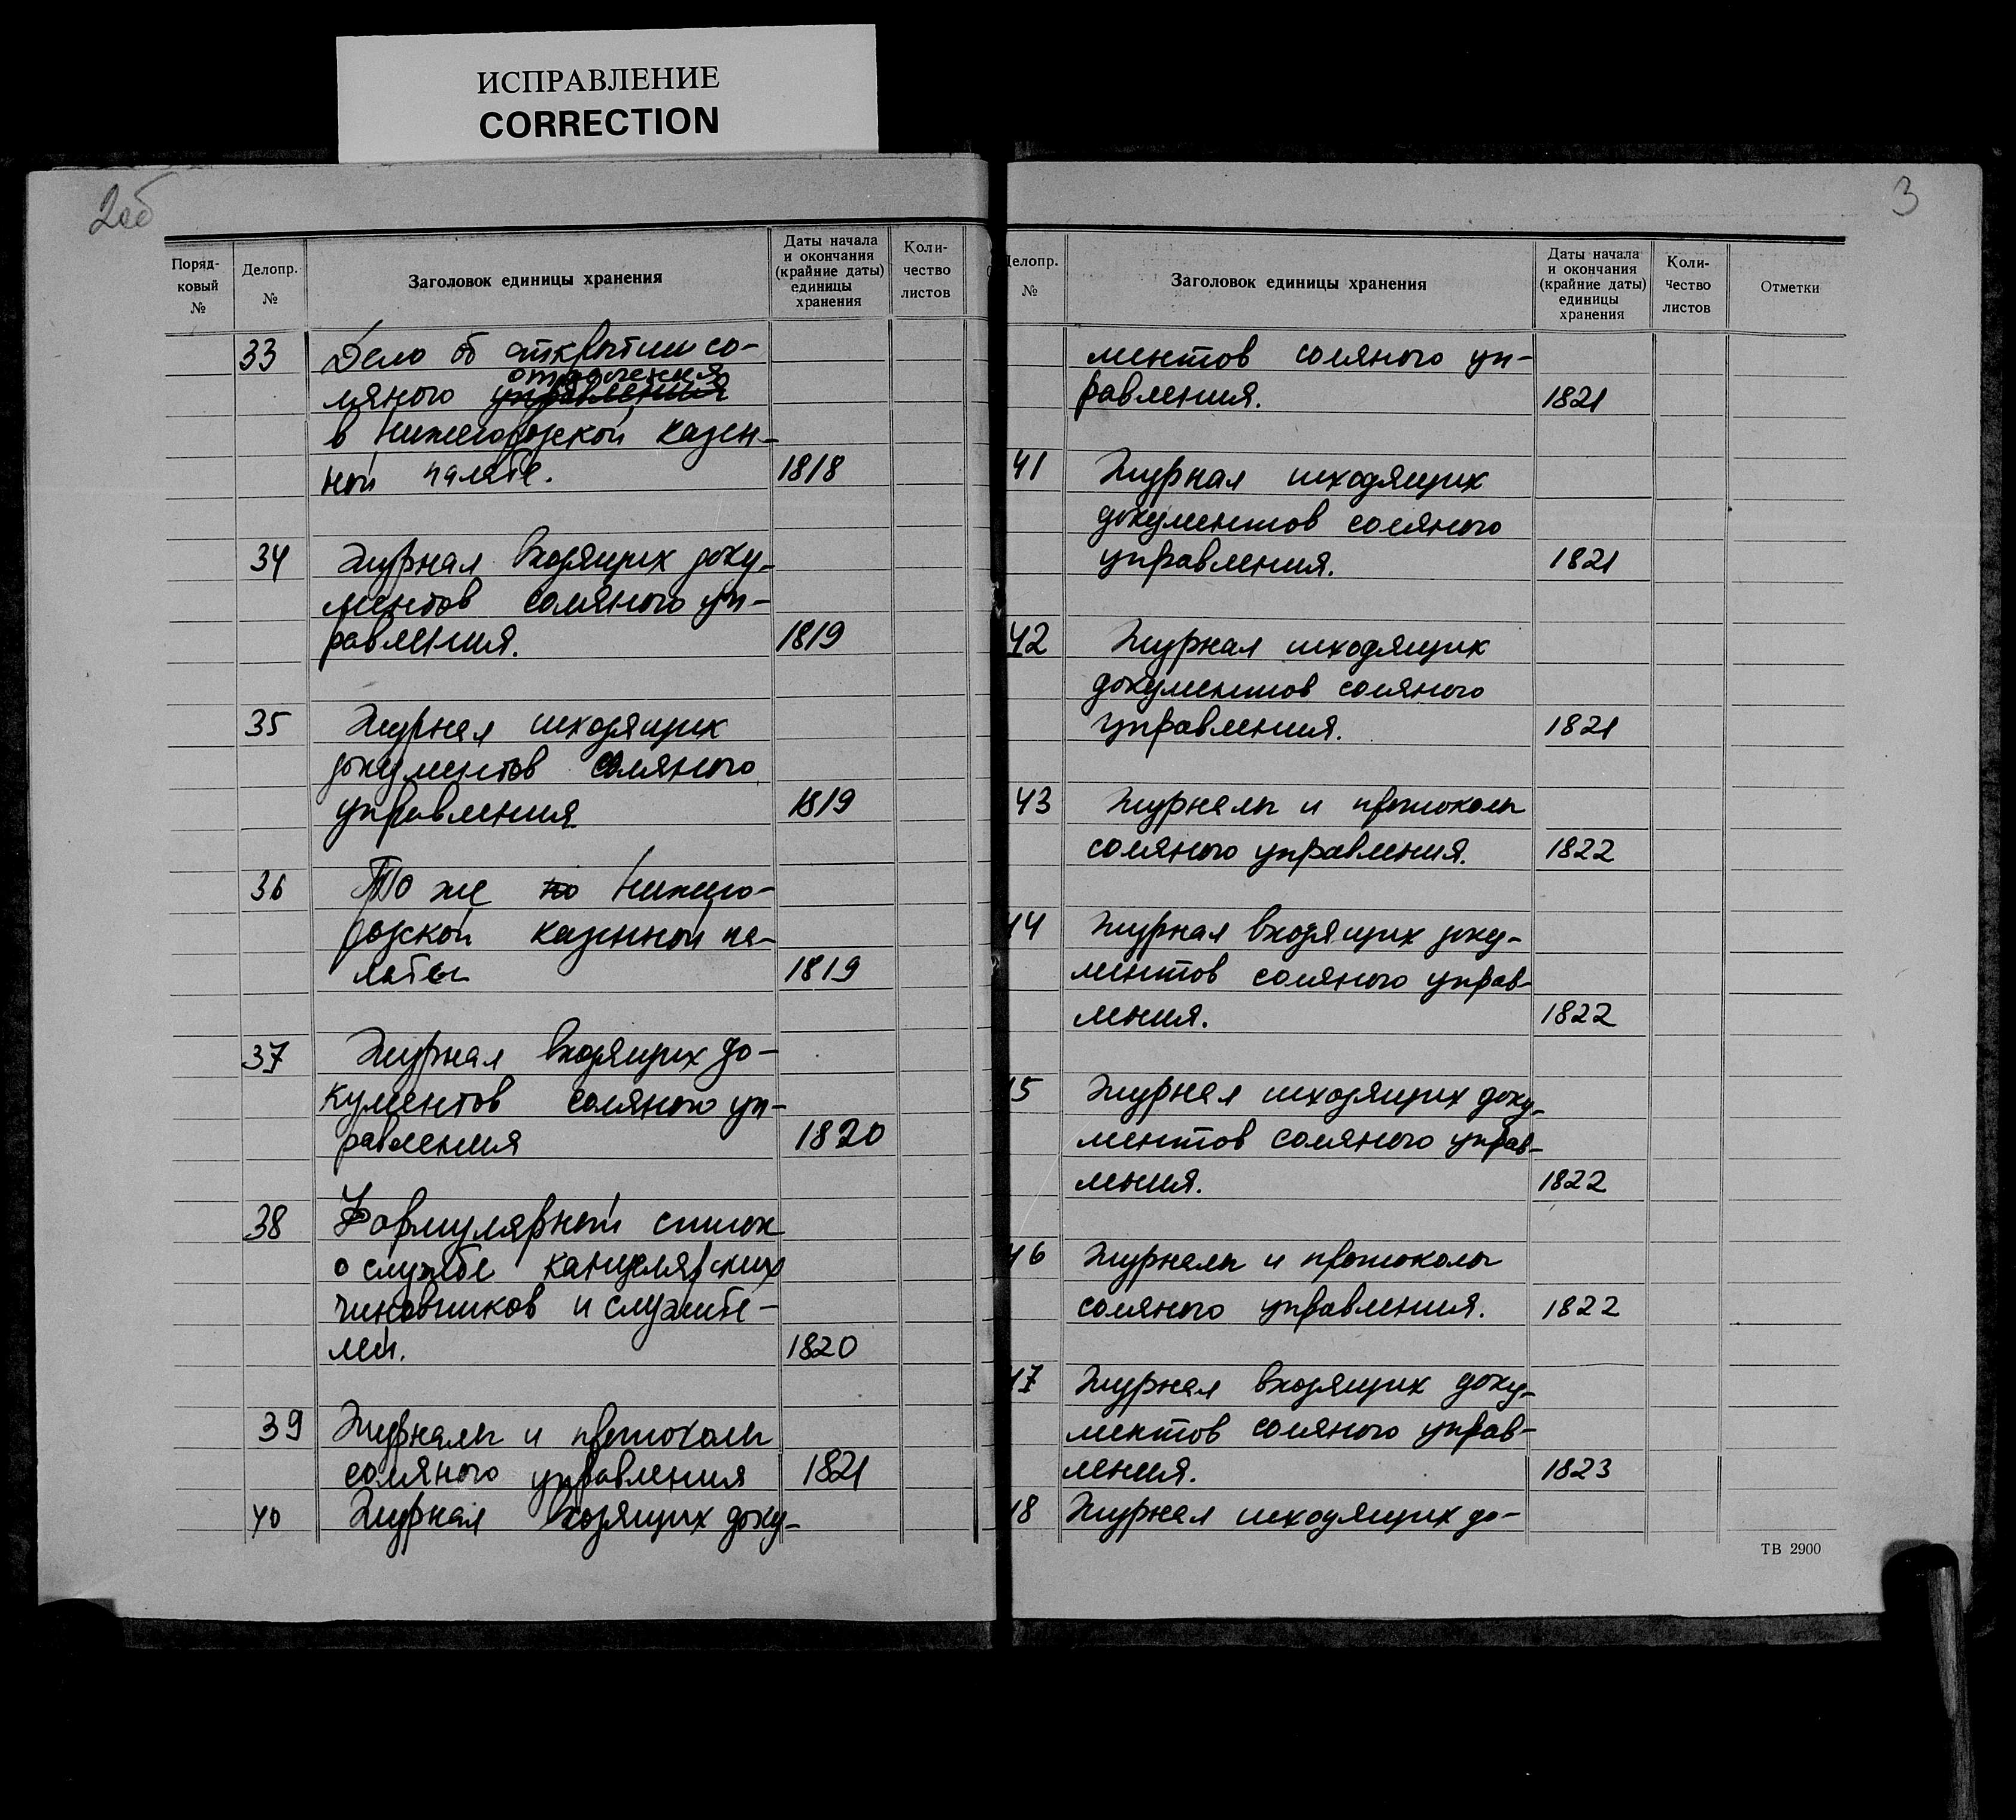 ИСПРАВЛЕНИЕ
CORRECTION
2об
Поряд-
ковый
№
Делопр.
№
Заголовок единицы хранения
Даты начала
и окончания
(крайние даты)
единицы
хранения
Коли-
чество
листов
33 Дело об открытии со-
отделения
ляного управления
в Нижегородской казен-
ной палате. 1818
34 Журнал входящих доку-
ментов соляного уп-
равления. 1819
35 Журнал исходящих
документов соляного
управления 1819
36 То же по Нижего-
родской казенной па-
латы 1819
37 Журнал входящих до-
кументов соляного уп-
равления 1820
38 Формулярный список
о службе канцелярских
чиновников и служите-
лей. 1820
39 Журналы и протоколы
соляного управления 1821
40 Журнал входящих доку-
3
Делопр.
№
Заголовок единицы хранения
Даты начала
и окончания
(крайние даты)
единицы
хранения
Коли-
чество
листов
Отметки
ментов соляного уп-
равления. 1821
41 Журнал исходящих
документов соляного
управления. 1821
42 Журнал исходящих
документов соляного
управления. 1821
43 Журналы и протоколы
соляного управления. 1822
44 Журнал входящих доку-
ментов соляного управ-
ления. 1822
45 Журнал исходящих доку-
ментов соляного управ-
ления. 1822
46 Журналы и протоколы
соляного управления. 1822
47 Журнал входящих доку-
ментов соляного управ-
ления. 1823
48 Журнал исходящих до-
ТВ 2900